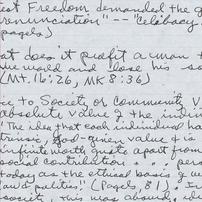 est Freedom demanded the g
renunciation" -- "celibacy
pages)
at does it profit a man t
he world and lose his so
(Mt. 16:26, MK 8:36)
ce to Society or community V
absolute value of the indiv
"The idea that each individual ha
trinsic, God-given value & is
infinite worth quite apart from
social contribution . . . . pers
today as the ethical basis of w
and politics" (Pagels, 81). In
society, this was absurd,